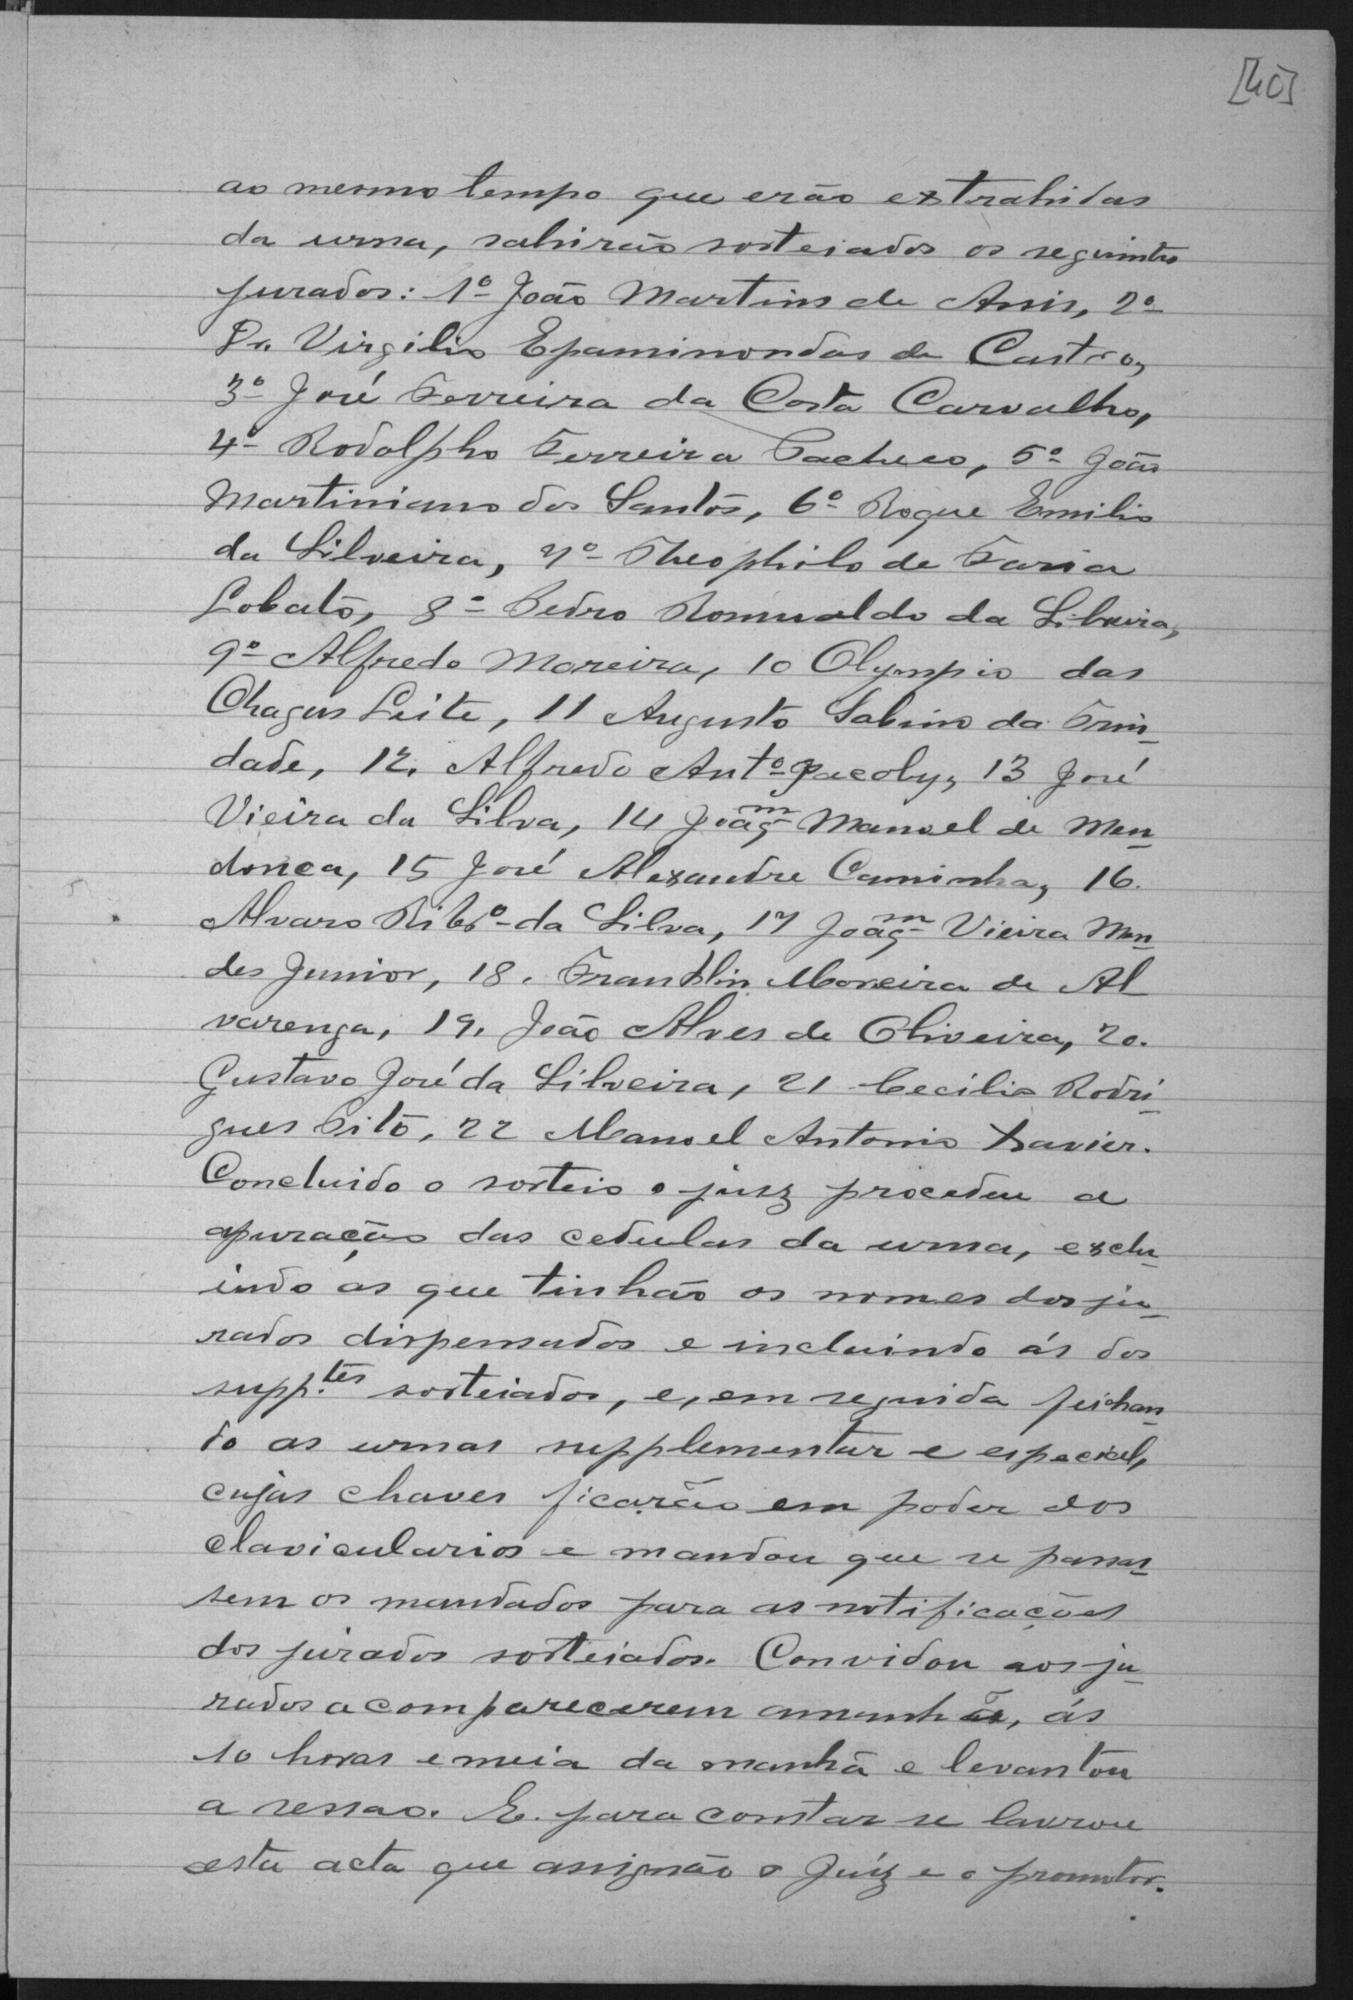 [40]
ao mesmo tempo que erão extrahidas
da urna, sahirão sorteiados os seguintes
jurados: 1º João Martins de Assis, 2º
Dr. Virgilio Epaminondas de Castro,
3º José Ferreira da Costa Carvalho,
4º Rodolpho Ferreira Pacheco, 5º João
Martiniano dos Santos, 6º Roque Emilio
da Silveira, 7º Theophilo de Faria
Lobato, 8º Pedro Romualdo da Silveira,
9º Alfredo Moreira, 10 Olympio das
Chagas Leite, 11 Augusto Sabino da Trin-
dade, 12. Alfredo Antº Jacoby, 13 José
Vieira da Silva, 14 Joaqm Manoel de Men-
donca, 15 José Alexandre Caminha, 16.
Alvaro Ribrº da Silva, 17 Joaqm Vieira Men-
des Junior, 18. Franklin Moreira de Al
varenga, 19. João Alves de Oliveira, 20.
Gustavo José da Silveira, 21 Cecilio Rodri-
gues Pito, 22 Manoel Antonio Xavier.
Concluido o sorteio o juiz procedeu a
apuração das cedulas da urna, exclu-
indo as que tinhão os nomes dos ju-
rados dispensados e incluindo ás dos
supp.tes sorteiados, e, em seguida feichan-
do as urnas supplementar e especial,
cujas chaves ficarão em poder dos
clavicularios e mandou que se passas-
sem os mandados para as notificações
dos jurados sorteiados. Convidou aos ju-
rados a comparecerem amanhã, ás
10 horas e meia da manhã e levantou
a sessao. E. para constar se lavrou
esta acta que assignão o Juiz e o promotor.